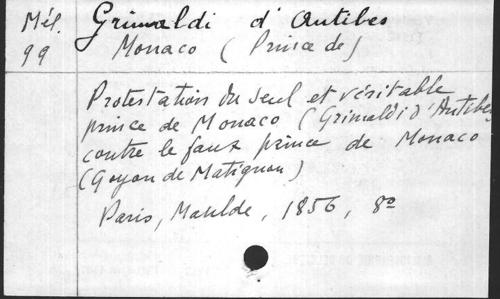 Mél.
99
Grimaldi d'Antibes
Monaco (Prince de)
Protestation du seul et véritable
prince de Monaco (Grimaldi d'Antibes
contre le faux prince de Monaco
(Goyon de Matignon)
Paris, Maulde, 1856, 8º